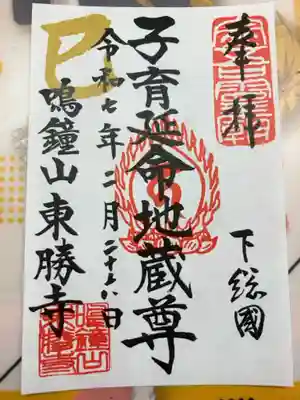 奉拝
下総國
子育延命地蔵尊
令和七年二月二十六日
巳
鳴鐘山東勝寺